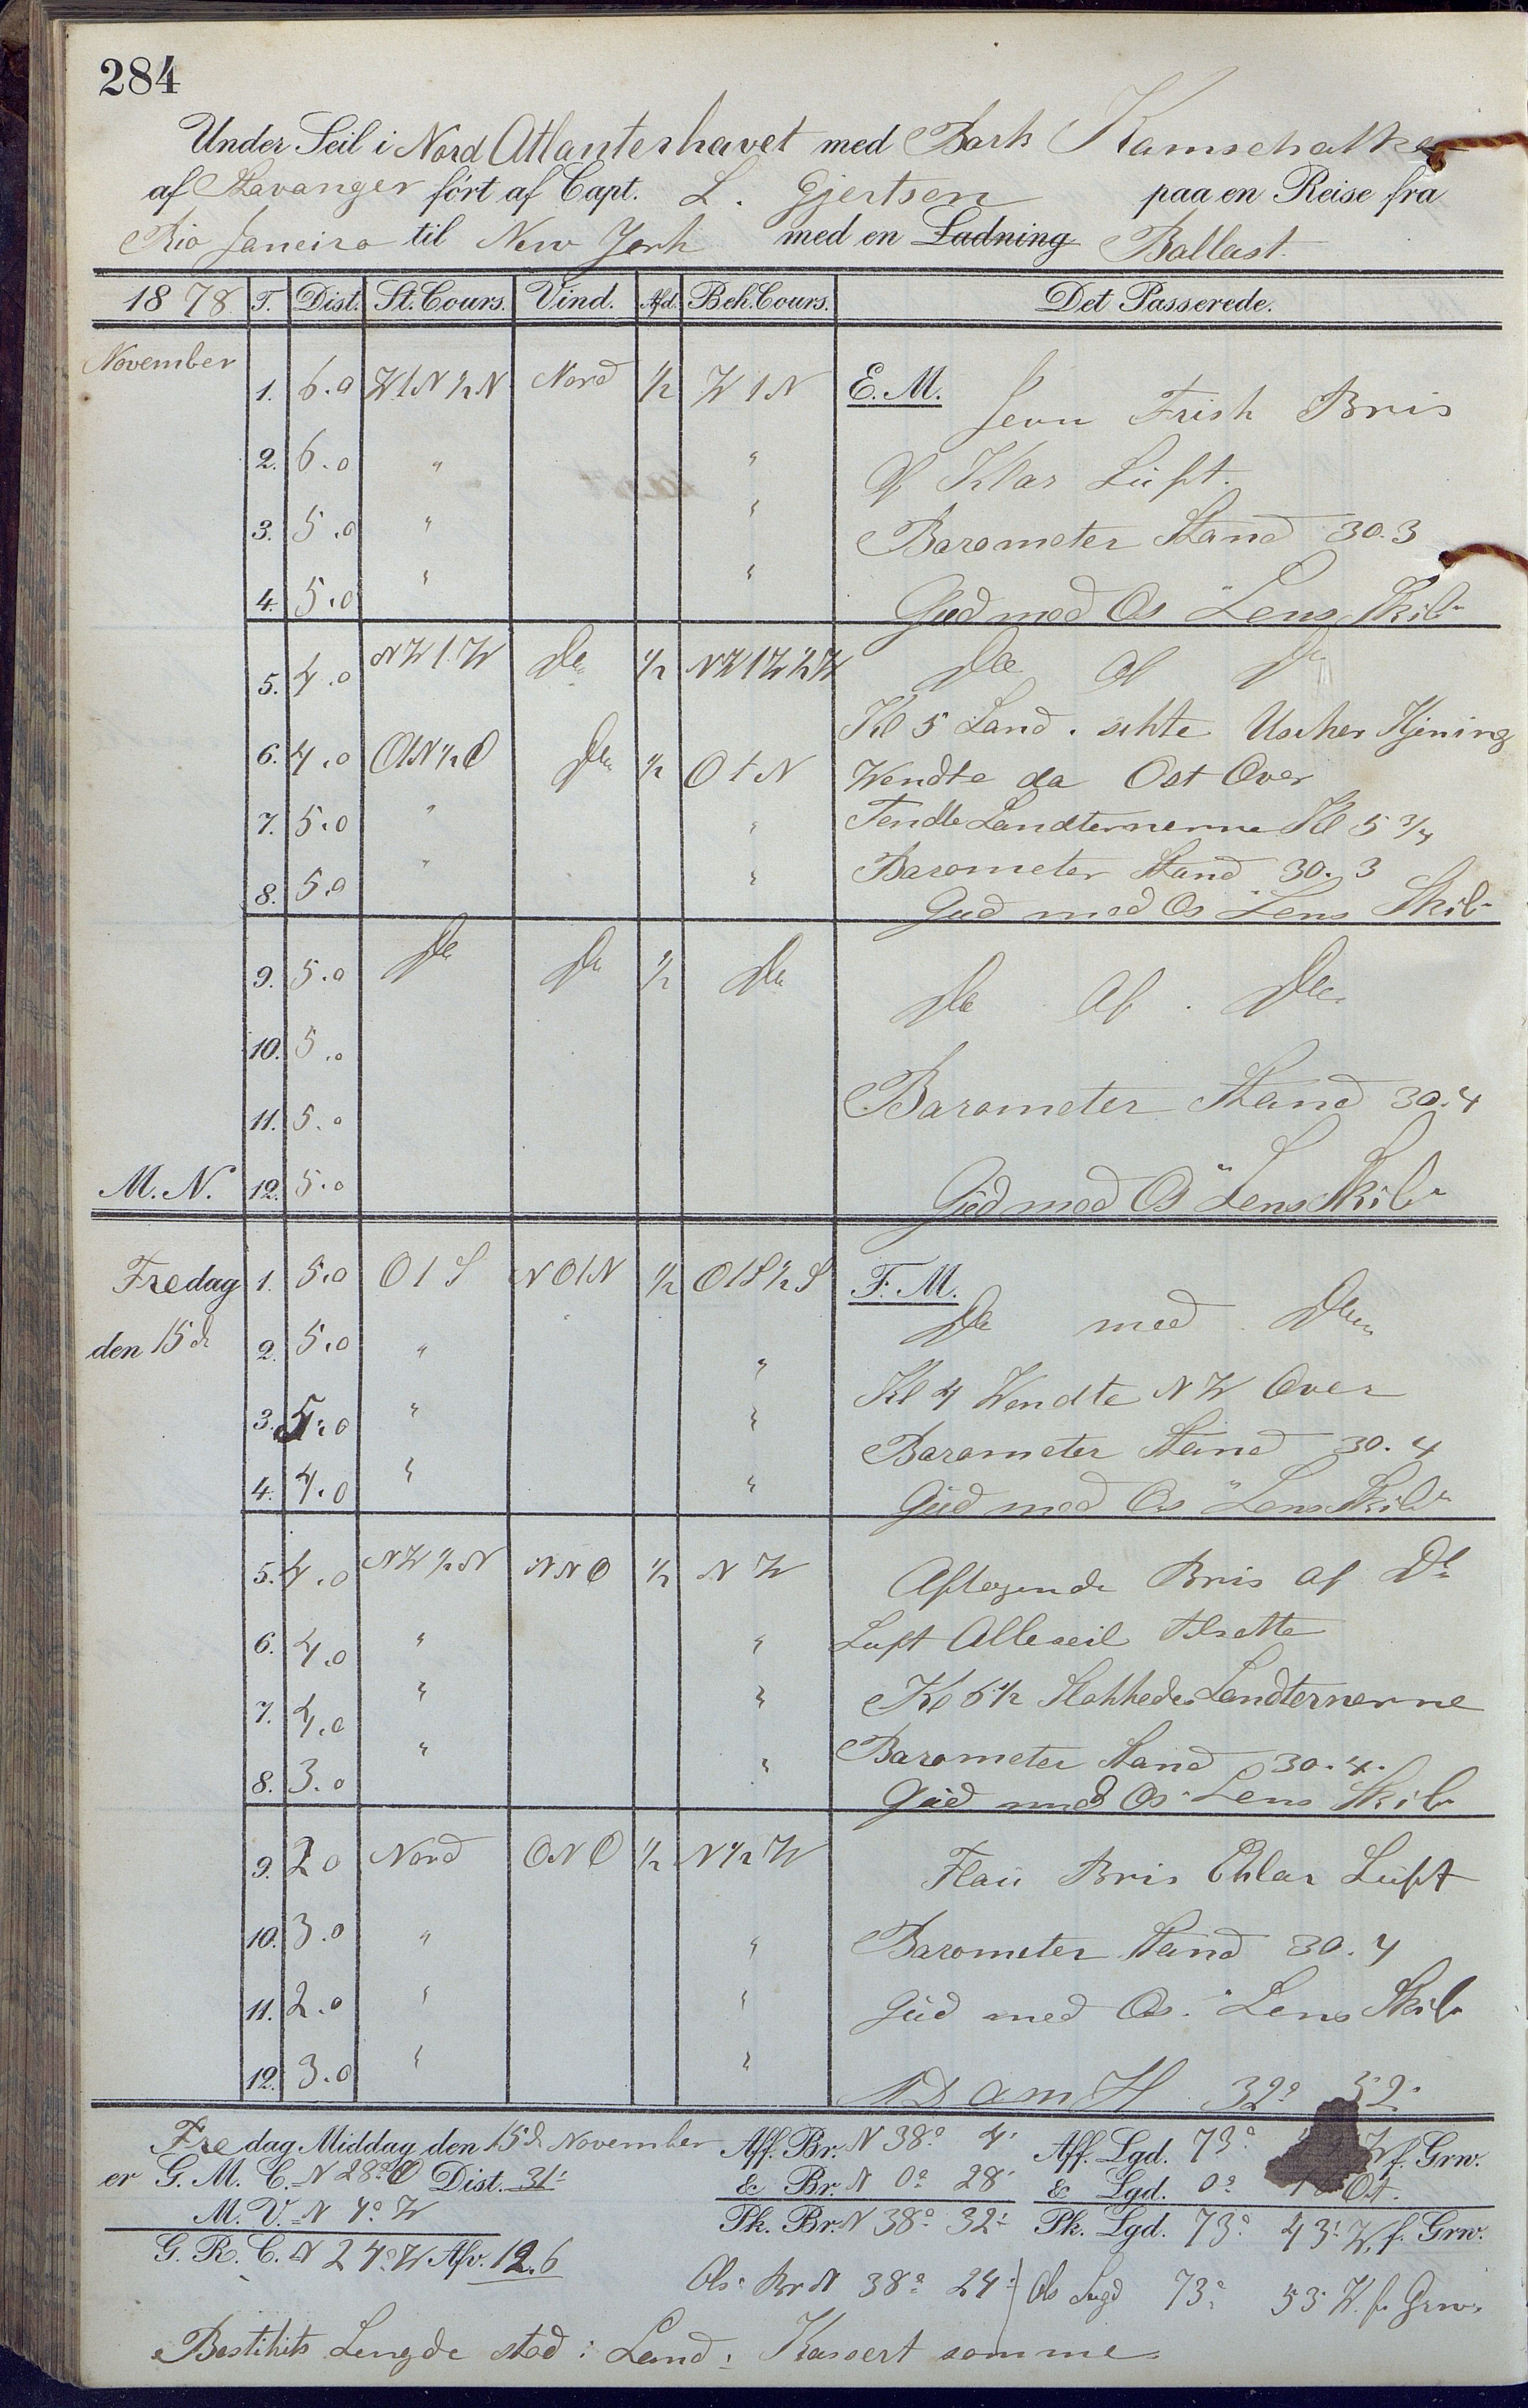 284
Under Seil i Nord Atlanterhavet med Bark Kamschatka
af Stavanger ført af Capt. L. Gjertsen paa en Reise fra
Rio Janeiro til New York med en Ladning Ballast.
1878 T. Dist. St. Cours. Vind. Afd. Beh. Cours. Det Passerede.
November
1. 6.0 W1N½N Nord ½ W1N E.M. Jevn Frisk Bris
2. 6.0 " " og Klar Luft.
3. 5.0 " " Barometer Stand 30.3
4. 5.0 " " Gud med Os "Lens Skib"
5. 4.0 NW1W Do ½ NW1W½W Do og Do
Kl 5 Land. sikte
6. 4.0 O1N½O Do ½ O1N Wendte da Ost Over
7. 5.0 " " Tendte Landternerne Kl 5¾
8. 5.0 " " Barometer Stand 30.3
Gud med Os "Lens Skib"
9. 5.0 Do Do ½ Do Do og Do
10. 5.0
11. 5.0 Barometer Stand 30.4
M.N. 12. 5.0 Gud med Os "Lens Skib"
Fredag 1. 5.0 O1S NO1N ½ O1S½S F.M. Do med Do
den 15d 2. 5.0 " " Kl 4 Wendte NW Over
3. 5.0 " " Barometer Stand 30.4
4. 4.0 " " Gud med Os "Lens Skib"
5. 4.0 NW½N NNO ½ NW Aftagende Bris og Do
6. 4.0 " " Luft Alleseil tilsatte
7. 4.0 " " Kl 6½ Slokkede Landternerne
8. 3.0 " " Barometer Stand 30.4.
Gud med Os "Lens Skib"
9. 2.0 Nord ONO ½ N½W Flau Bris Klar Luft
10. 3.0 " " Barometer Stand 30.4
11. 2.0 " " Gud med Os. "Lens Skib"
12. 3.0 " " 32° 52'
Fredag Middag den 15d November Aff. Br. N 38° 4' Aff. Lgd. 73° W f. Grw.
er G. M. C. N 28° O Dist. 31' & Br. N 0° 28' & Lgd. 0° Ost.
M. V. N 4° W Pk. Br. N 38° 32' Pk. Lgd. 73° 43' W. f. Grw.
G. R. C. N 24° W Afv. 12.6
Obs Br N 38° 24' Obs Lngd 73° 53' W. f. Grw.
Bestikits Lengde stod i Land: Kassert somme